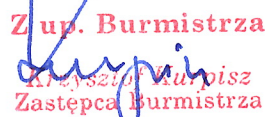 Z up. Burmistrza
Krzysztof Kurpisz
Zastępca Burmistrza